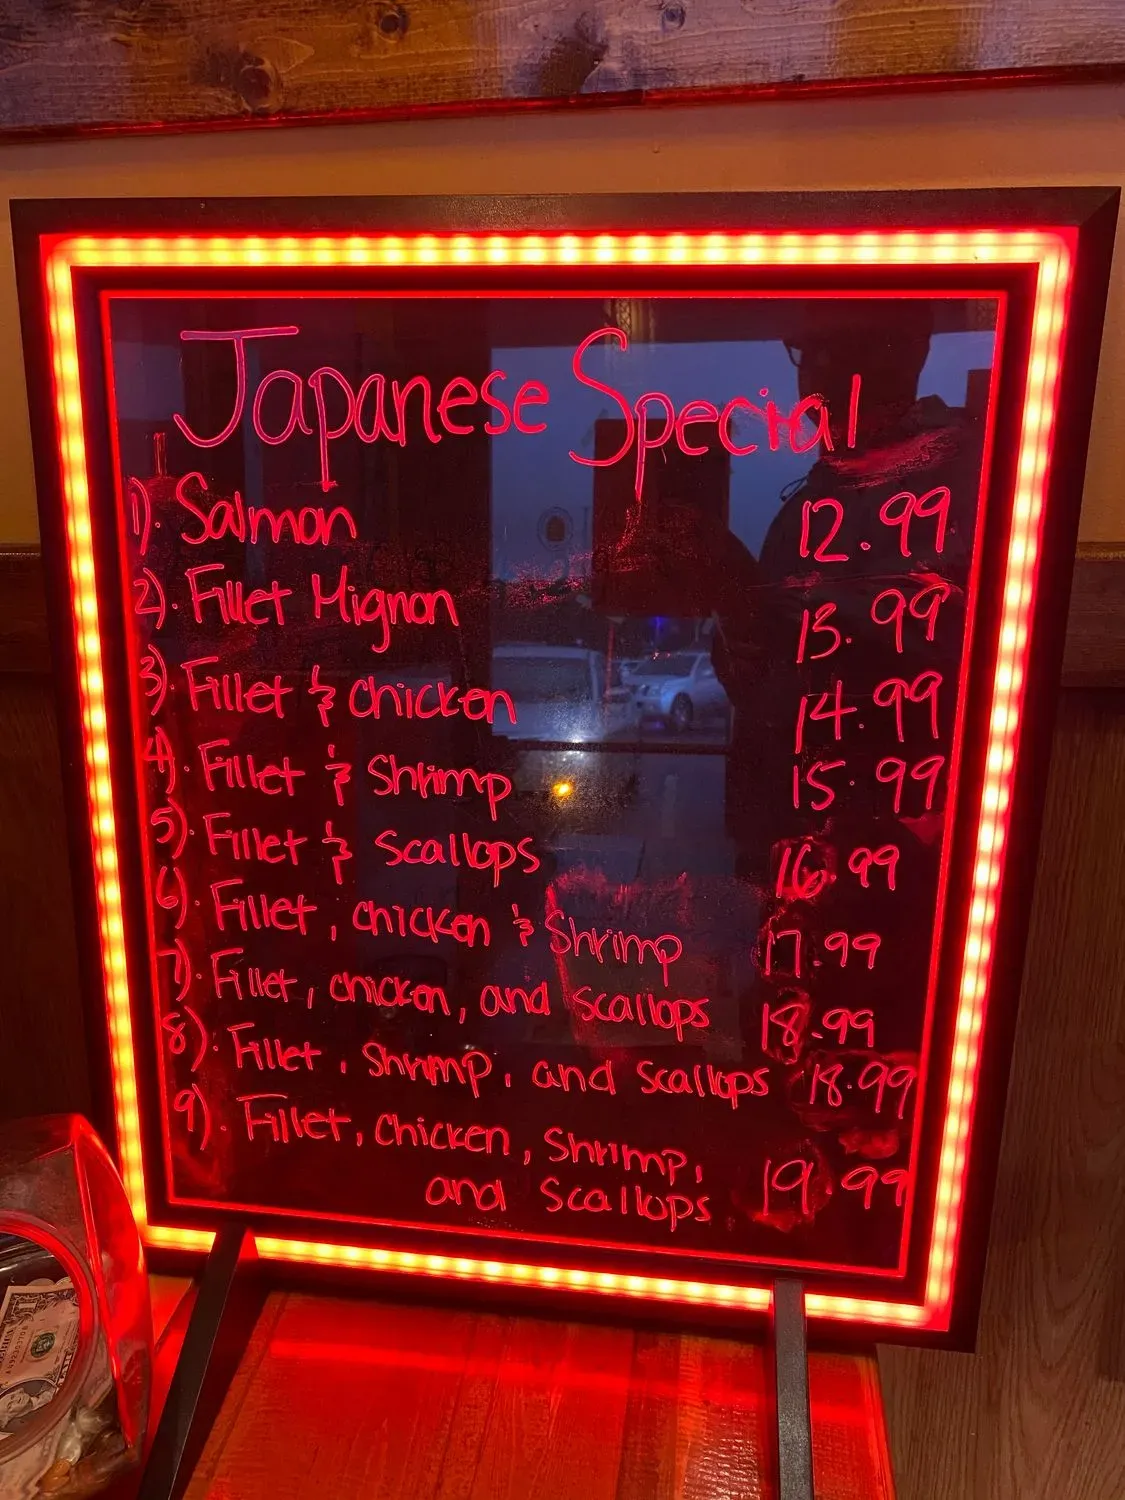 Japanese Special
1). Salmon 12.99
2). Fillet Mignon 13.99
3). Fillet & chicken 14.99
4). Fillet & Shrimp 15.99
5). Fillet & Scallops 16.99
6). Fillet, chicken & Shrimp 17.99
7). Fillet, chicken, and Scallops 18.99
8). Fillet, Shrimp, and Scallops 18.99
9). Fillet, Chicken, Shrimp,
and Scallops 19.99